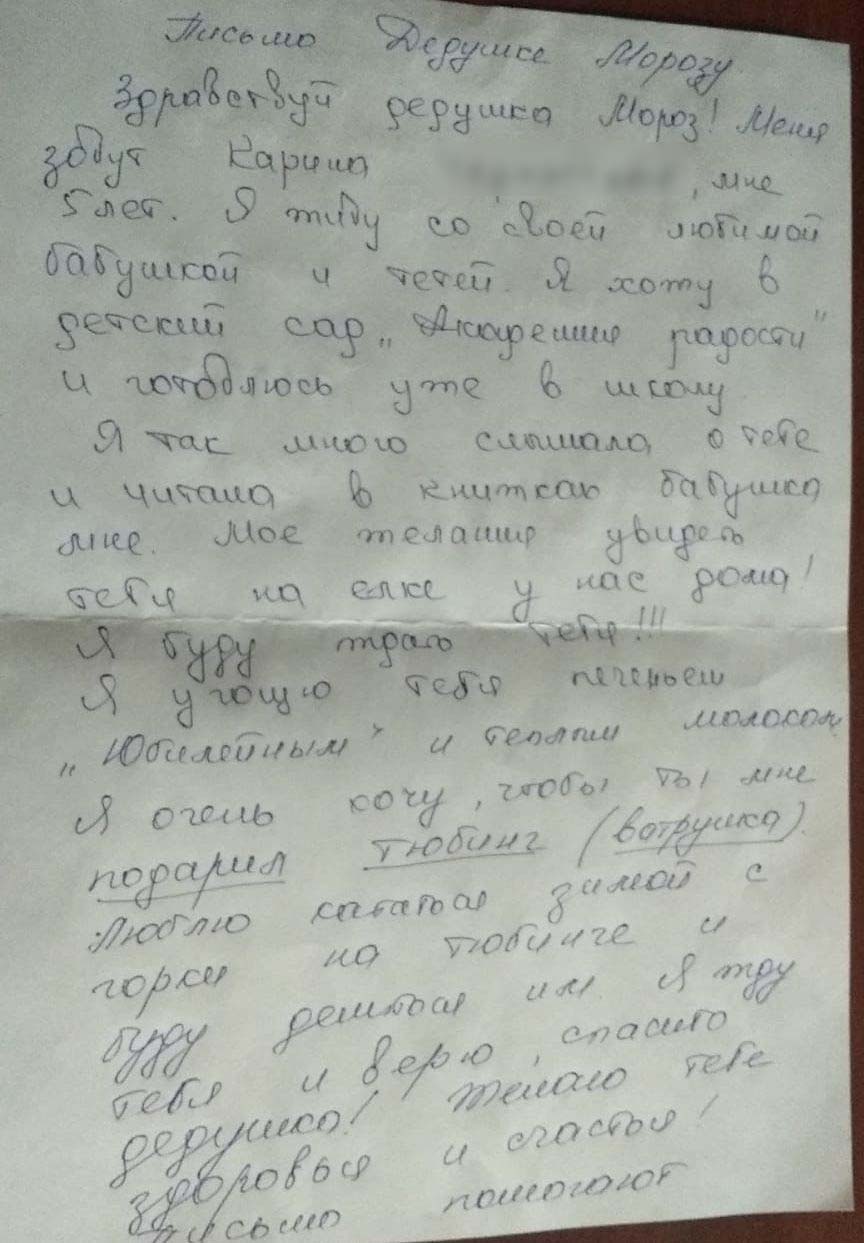 Письмо Дедушке Морозу
Здравствуй дедушка Мороз! Меня
зовут Карина , мне
5 лет. Я живу со своей любимой
бабушкой и тетей. Я хожу в
детский сад „Академия радости"
и готовлюсь уже в школу.
Я так много слышала о тебе
и читала в книжках бабушка
мне. Мое желание увидеть
тебя на елке у нас дома!
Я буду ждать тебя!!!
Я угощю тебя печеньем
„Юбилейным" и теплым молоком.
Я очень хочу, чтобы ты мне
подарил тюбинг (ватрушка).
Люблю кататься зимой с
горки на тюбинге и
буду делиться им. Я жду
тебя и верю, спасибо
дедушка! Желаю тебе
здоровья и счастья!
письмо помогают